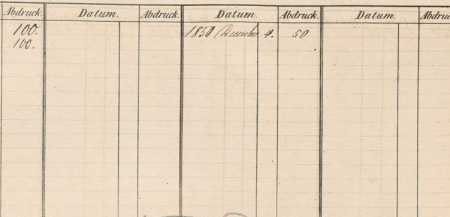 Abdruck. Datum. Abdruck. Datum. Abdruck. Datum. Abdruck
100. December 4. 50
100.